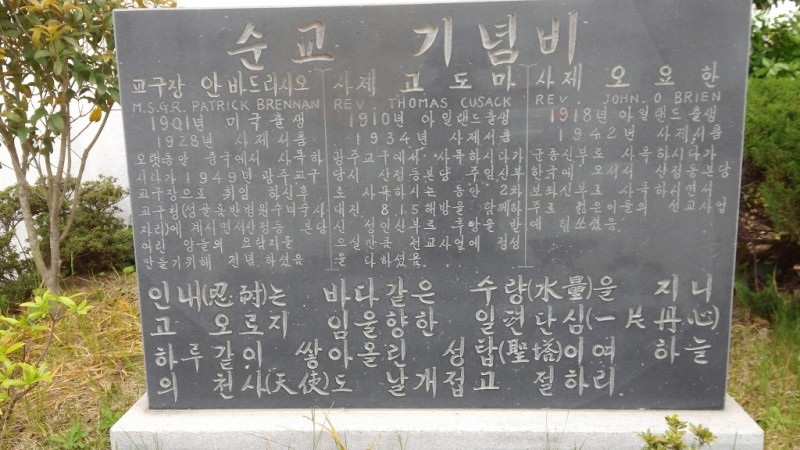 순교 기념비
교구장 안 바드리시오
M.S.G.R. PATRICK BRENNAN
1901년 미국출생
1928년 사제서품
오랫동안 중국에서 사목하
시다가 1949년 광주교구
교구장으로 취임 하신후
교구청(성골롬반병원수녁국사
자리)에 계시면서산정동 본당
어린 양들의 요람지를
만들기위해 전념 하셨음
사제 고도마
REV. THOMAS CUSACK
1910년 아일랜드출생
1934년 사제서품
광주교구에서 사목하시다가
당시 산정동본당 주임신부
로 사목하시는 동안 2차
대전, 8.15해방을 함께하
신 성인신부로 추앙을 받
으실만큼 전교사업에 정성
을 다하셨음.
사제 오요한
REV. JOHN. O BRIEN
1918년 아일랜드출생
1942년 사제서품
군종신부로 사목하시다가
한국에 오셔서 산정동본당
보좌신부로 사목하시면서
주로 젊은이들의 선교사업
에 힘쓰셨음.
인내(忍耐)는 바다같은 수량(水量)을 지니
고 오로지 임을향한 일편단심(一片丹心)
하루같이 쌓아올린 성탑(聖塔)이여 하늘
의 천사(天使)도 날개접고 절하리